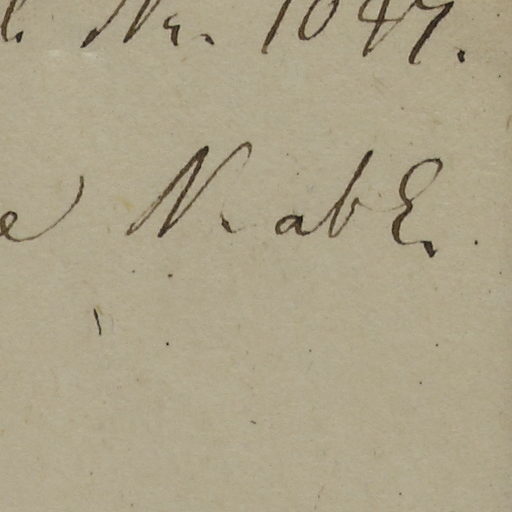 Nr. 1047.
N. ab E.